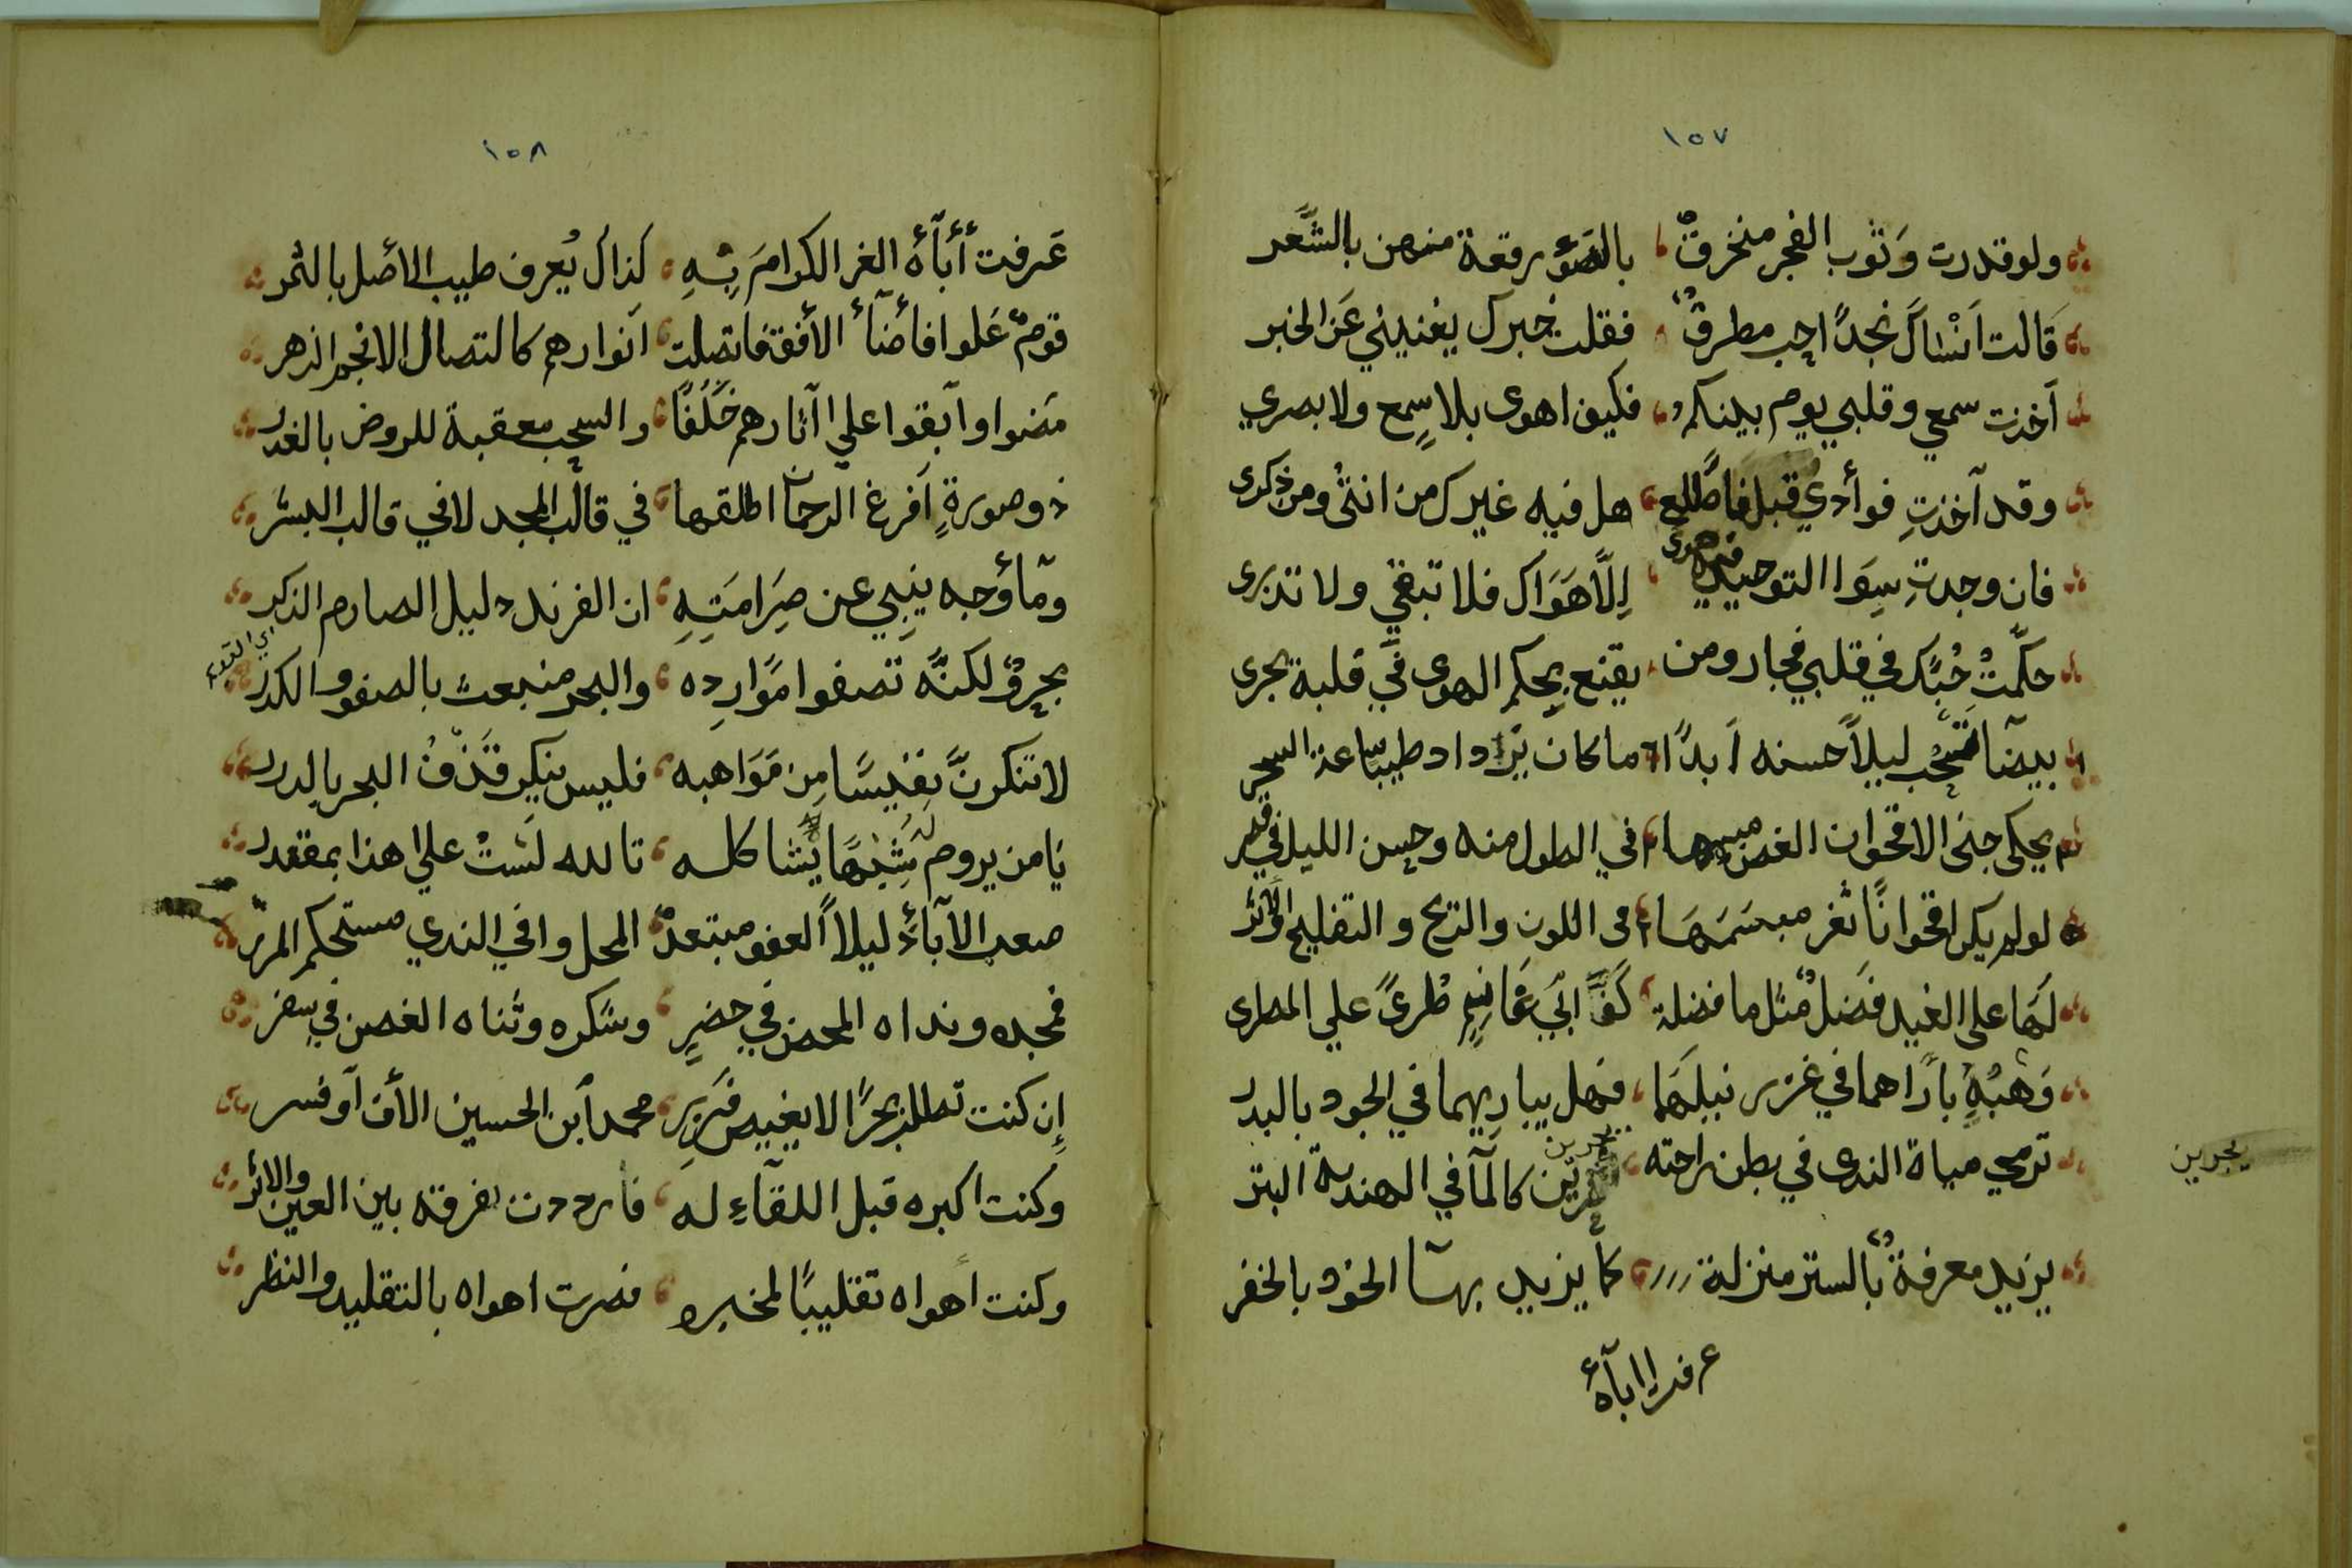 ١٥٧
ولو قدرت وَثوب الفجر منخرقٌ بالضوٕ رقعة منهن بالشَّعر
قَالت اَنْسَاكَ نجداً احب مطرقٌ فقلت خبرك يغنيني عَن الخبر
اَخذت سمعي وقلبي يوم بينكم فكيف اهوى بلا سمع ولا بصري
وقد آخذتِ فوأدي قبل فاطّلع هل فيه غيرك من انثى ومن ذكرى
فان وجدتِ سِوَا التوحيد فيه هوى اِلّا هَوَاك فلا تبقي ولا تذرى
حكّمتْ حُبّك في قلبي فجار ومن يقنع بحكم الهوى في قلبة يجرى
بيضا تسحب ليلاً حسنه اَبدًا ما كان يزداد طيبا ساعة السحر
يحكى جنى الاقحوان الغض مبسمها في الطول منه وحسن الليل في قصر
لو لم يكن اقحوانًا ثغر مبسَمَهَا في اللون والريح والتفليج والأثر
لَهَا على الغيد فضلٌ مثل ما فضلة كَفّ ابي غانم طُرىً علي المطرى
وَهَبْهِ باراهما في غزر نبلهَا فهل يباريهما في الجود بالبدر
ترمي مياة الندى في بطن راحته يجرين كالمآ في الهندية البتر
يجرين
يزيد معرفةٌ بالستر منزلة كما يزيد بهآ الخود بالخفر
عرفت اابآهٔ
١٥٨
عَرفت أٔبآهٔ الغر الكرام بِهِ كذاك يُعرف طيب الأصل بالثمر
قومٌ عَلوا فأضآٔ الأفق فاتصلت اَنوارهم كالتصال الانجم الزهر
مَضوا وآبقوا علي آثارهم خَلَفًا والسحب معقبة للروض بالغدر
ذو صورةٍ اَفرغ الرحمان اطلقها في قالب المجد لا في قالب البشر
ومآٔ وجه ينبِي عن صِرَامَتِهِ ان الفرند دليل الصارم الذكر
بحرٌ ولكنَّه تصفوا مَوَارِده والبحر منبعث بالصفو والكدر
لا تنكرنَّ نفيسًا مِن مَوَاهبه فليس ينكر قَذْفُ البحر بالدرر
يَا من يروم شبهًا له يُشاكله تالله لَسْتْ علي هذا بمقتدر
صعب الآبآءٔ ليلاً العفو مبتعدٌ المحل وافي الندي مستحكم المرر
فمجده ونداه المحض في حضرٍ وشكره وثناه الغصن في سفر
إن كنت تطلب بحرًا لا يغيص فَزرِ محمد آبن الحسين الأن آو فسر
وكنت اكبره قبل اللقآءِ له فازددت بفرقة بين العين والاثر
وكنت اهواه تقليبًا لمخبره فصرت اهواه بالتقليد والنظر